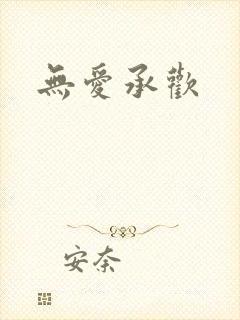 無愛承歡
安奈